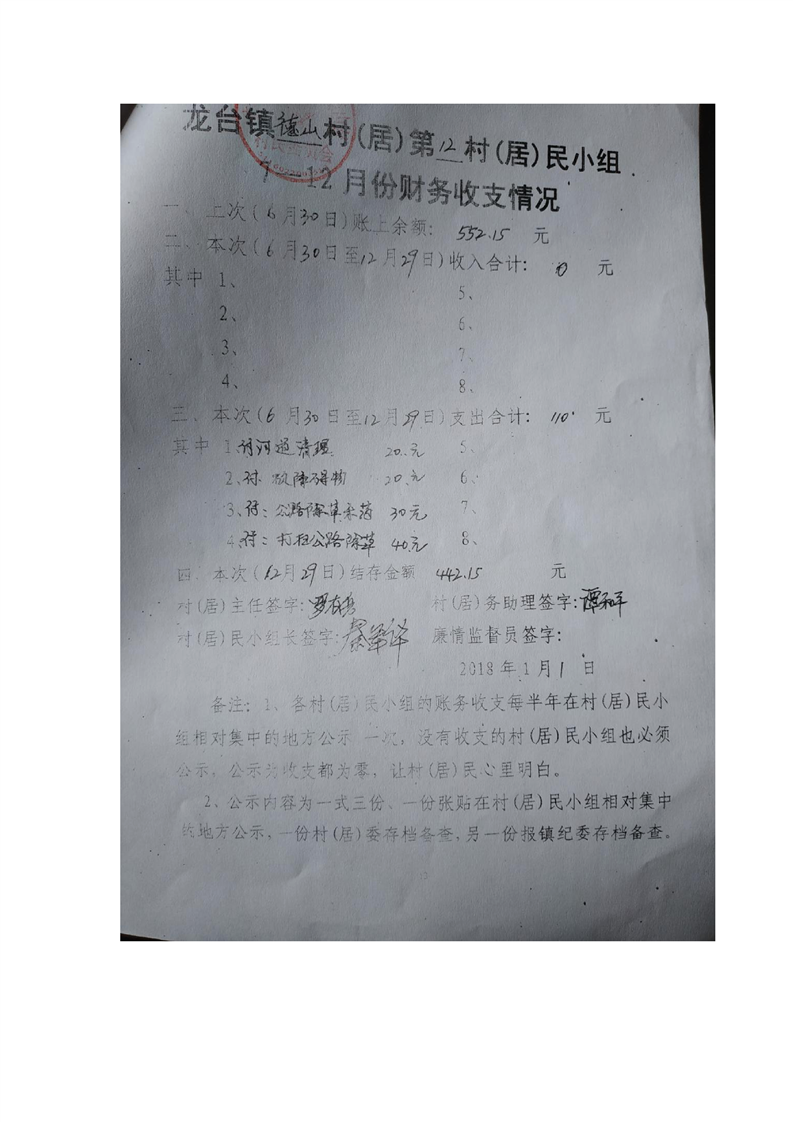 龙台镇德山村(居)第12村(居)民小组
7—12月份财务收支情况
一、上次(6月30日)账上余额: 552.15 元
二、本次(6月30日至12月29日)收入合计: 0 元
其中 1、 5、
2、 6、
3、 7、
4、 8、
三、本次(6月30日至12月29日)支出合计: 110 元
其中 1、付河道清理 20.元 5、
2、付 障碍物 20.元 6、
3、付:公路除草 30元 7、
4、付: 公路除草 40元 8、
四、本次(12月29日)结存金额 442.15 元
村(居)主任签字: 村(居)务助理签字:谭和平
村(居)民小组长签字: 廉情监督员签字:
2018年1月1日
备注:1、各村(居)民小组的账务收支每半年在村(居)民小
组相对集中的地方公示一次,没有收支的村(居)民小组也必须
公示,公示为收支都为零,让村(居)民心里明白。
2、公示内容为一式三份、一份张贴在村(居)民小组相对集中
的地方公示,一份村(居)委存档备查,另一份报镇纪委存档备查。